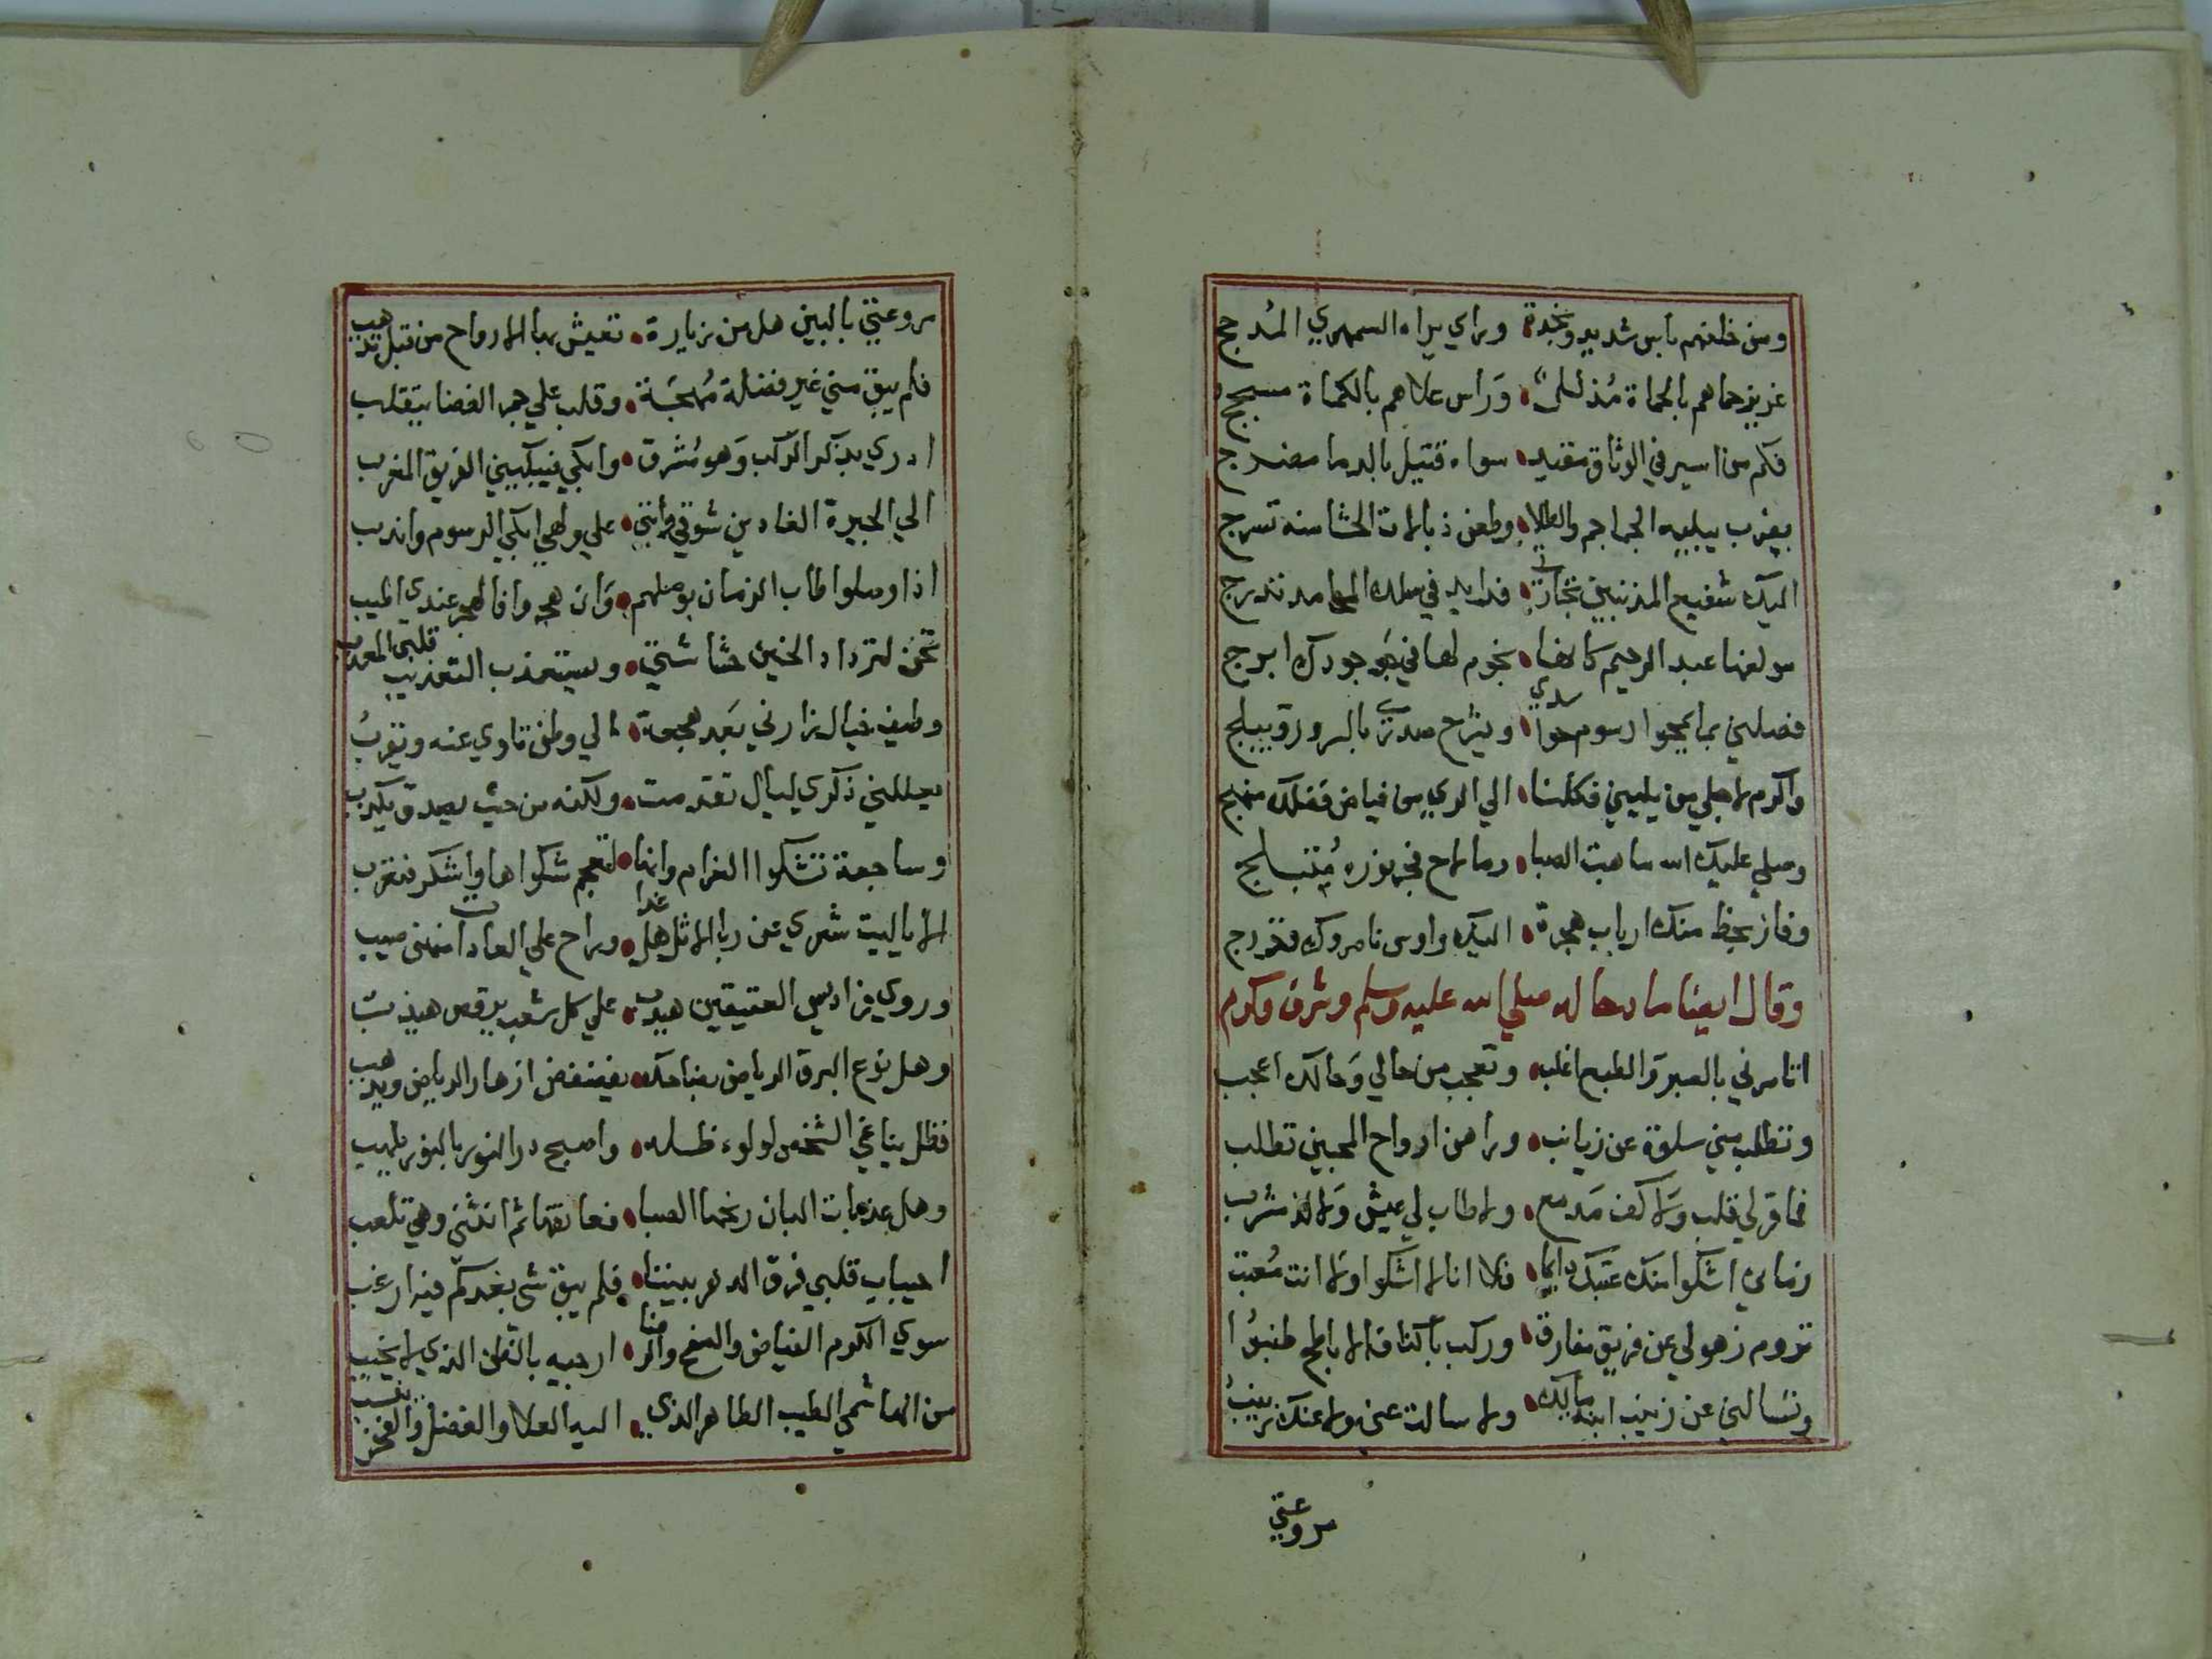 ومن خلفهم باس شديد ونجدة وراي يراه السمهري المدجج
عزيز حماهم بالحماة مذلل وراس علاهم بالكماة
فكم من اسير في الوثاق مقيد سواه قتيل بالدما مضرج
بضرب الجماجم والطلا وطعن ذبالات الحشا منه تسرج
اليك شفيع المذنبين تجارتي فدابد في سلك المحامد تندرج
مولفها عبد الرحيم كانها نجوم لها في جو جودك ابرج
فصلني بما يمحوا رسوم حواسدي ويشرح صدري بالسرور ويبلج
واكرم لاجلي من يليني فكلنا الي الري من فياض فضلك منهج
وصلي عليك الله ما هبت الصبا وما لاح فجر نوره متبلج
وفاز بحظ منك ارباب هجرة اليك واوس ناصروك وخزرج
وقال ايضا مادحا له صلي الله عليه وسلم وشرف وكرم
اتامرني بالصبر والطبع اغلب وتعجب من حالي وحالك اعجب
وتطلب مني سلوة عن زيانب وراهن ارواح المحبين تطلب
فما قر لي قلب ولا كف مدمع ولا طاب لي عيش ولا لذ مشرب
زماني اشكوا منك عتبك دايما فلا انا لا اشكوا ولا انت معتب
تروم ذهولي عن فريق مفارق وركب باكناف الاباطح طنبوا
وتسالني عن زينب ابنة مالك ولا سالت عني ولا عنك زينب
مروعتي
مروعتي بالبين هل من زيارة تعيش بها الارواح من قبل تذهب
فلم يبق مني غير فضلة مهجة وقلب علي جمر الغضا يتقلب
ادري بذكر الركب وهو مشرق وابكي فيبكيني الفريق المغرب
الي الجيرة الغادين شوقي وانني علي ولهي ابكي الرسوم واندب
اذا وصلوا طاب الزمان بوصلهم وان هجروا فالهجر عندي اطيب
تحن لترداد الحنين حشاشتي ويستعذب التعذيب قلبي المعذب
وطيف خيال زارني بعد هجعة الي وطن تاوي عنه وتغرب
يعللني ذكري ليال تقدمت ولكنه من حيث يصدق يكذب
وساجعة تشكوا الغرام وانما لتعجم شكواها واشكو فتغرب
الا ياليت شعري عن ربا الاثل هل غدا وراح علي العادات منهن صيب
وروي زاد يمي العقيقين هيدب علي كل شعب يرقص هيذب
وهل نوع البرق الرياض بضاحك يفضفض ازهار الرياض ويذهب
فظل يناغي الشخص لولوء ظله واصبح در النور بالنور يلهب
وهل عذبات البان رنحها الصبا فعانقها ثم انثني وهي تلعب
احباب قلبي فرق الدهر بيننا فلم يبق شي بعدكم فيه ارغب
سوي الكرم الفياض والصفح والرضا ارجيه بالظن الذي لا يخيب
من الهاشمي الطيب الطاهر الذي اليه العلا والفضل والفخر ينسب